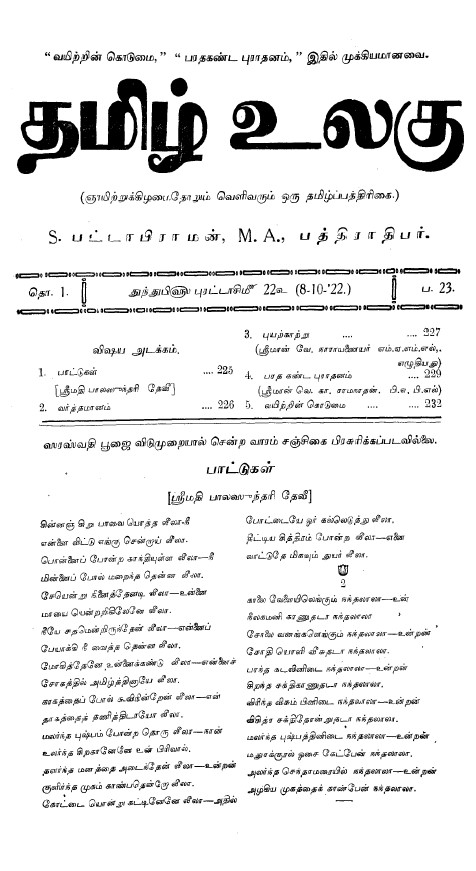 “ வயிற்றின் கொடுமை,” “ பரதகண்ட புராதனம்,” இதில் முக்கியமானவை.
தமிழ் உலகு
(ஞாயிற்றுக்கிழமைதோறும் வெளிவரும் ஒரு தமிழ்ப்பத்திரிகை.)
S. பட்டாபிராமன், M. A., பத்திராதிபர்.
தொ. 1. துந்துபிஹு புரட்டாசிமீ 22உ (8-10-'22.) ப. 23.
விஷய அடக்கம்.
1. பாட்டுகள் .... 225
[ஸ்ரீமதி பாலஸுந்தரி தேவீ]
2. வர்த்தமானம் .... 226
3. புயற்காற்று .... .... 227
(ஸ்ரீமான் வே. நாராயணையர் எம்.ஏ.எம்.எல்,.
எழுதியது)
4. பரத கண்ட புராதனம் .... 229
(ஸ்ரீமான் வெ. கா. ராமநாதன். பி.ஏ. பி.எல்)
5. வயிற்றின் கொடுமை .... .... 232
ஸரஸ்வதி பூஜை விடுமுறையால் சென்ற வாரம் சஞ்சிகை பிரசுரிக்கப்படவில்லை.
பாட்டுகள்
[ஸ்ரீமதி பாலஸுந்தரி தேவீ]
கின்னஞ் சிறு பாவை யொத்த லீலா-நீ
என்னை விட்டு எங்கு சென்றாய் லீலா.
பொன்னைப் போன்ற காந்தியுள்ள லீலா—நீ
மின்னைப் போல் மறைந்த தென்ன லீலா.
சேயென்று நினைத்தேனடி லீலா—உன்னை
மாயை யென்றறிகிலேனே லீலா.
நீயே சதமென்றிருந்தேன் லீலா—என்னைப்
பேயாக்கி நீ வைத்த தென்ன லீலா.
மோகித்தேனே உன்னைக்கண்டு லீலா—என்னைச்
சோகத்தில் அமிழ்த்தினாயே லீலா.
காகத்தைப் போல் கூவிநின்றேன் லீலா—என்
தாகத்தைத் தணித்திடாயோ லீலா.
மலர்ந்த புஷ்பம் போன்ற தொரு லீலா—நான்
உலர்ந்த சிறகானேனே உன் பிரிவால்.
தளர்ந்த மனத்தை அடைந்தேன் லீலா—உன்றன்
குளிர்ந்த முகம் காண்பதென்றே லீலா.
கோட்டை யொன்று கட்டினேனே லீலா—அதில்
போட்டையே ஓர் கல்லெடுத்து லீலா.
நீட்டிய சித்திரம் போன்ற லீலா—எனை
வாட்டுதே மிகவும் துயர் லீலா.
2
காலை வேளையிலெங்கும் நந்தலாலா—உன்
நீலகமனி காணுதடா நந்தலாலா
சோலை வனங்களெங்கும் நந்தலாலா—உன்றன்
சோதி யொளி வீசுதடா நந்தலாலா.
பரந்த கடலினிடை நந்தலாலா—உன்றன்
சிறந்த சக்திகாணுதடா நந்தலாலா.
விரிந்த விசும் பினிடை நந்தலாலா—உன்றன்
விசித்ர சக்திதோன்றுதடா நந்தலாலா.
மலர்ந்த புஷ்பத்தினிடை நந்தலாலா—உன்றன்
மதுரக்குரல் ஓசை கேட்பேன் நந்தலாலா.
அலர்ந்த செந்தாமரையில் நந்தலாலா—உன்றன்
அழகிய முகத்தைக் காண்பேன் நந்தலாலா.